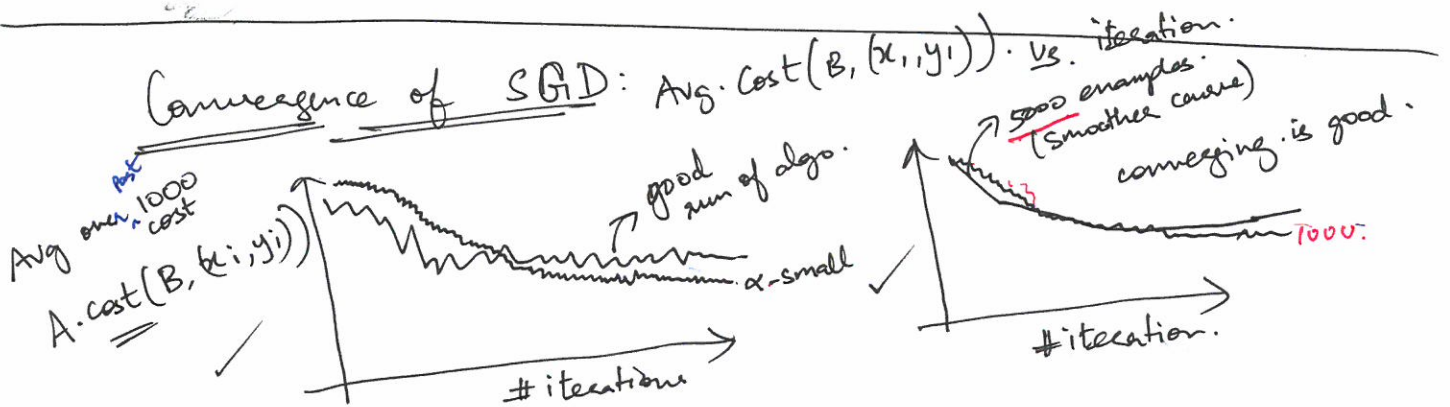 Convergence of SGD: Avg. Cost(B, (xi, yi)). vs. iteration.
past
Avg over 1000
cost
A. cost(B, (xi, yi))
good
run of algo.
α-small
# iterations
5000 examples.
(smoother curve)
converging is good.
1000.
# iteration.